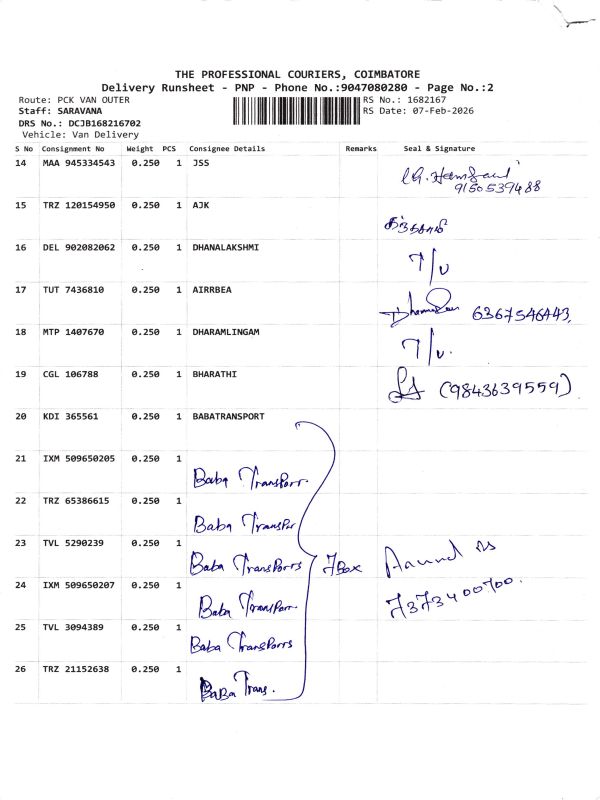 THE PROFESSIONAL COURIERS, COIMBATORE
Delivery Runsheet - PNP - Phone No.:9047080280 - Page No.:2
Route: PCK VAN OUTER
RS No.: 1682167
Staff: SARAVANA
RS Date: 07-Feb-2026
DRS No.: DCJB168216702
Vehicle: Van Delivery
S No Consignment No Weight PCS Consignee Details Remarks Seal & Signature
14 MAA 945334543 0.250 1 JSS
9150539488
15 TRZ 120154950 0.250 1 AJK
16 DEL 902082062 0.250 1 DHANALAKSHMI
T/U
17 TUT 7436810 0.250 1 AIRRBEA
6367546443
18 MTP 1407670 0.250 1 DHARAMLINGAM
T/U.
19 CGL 106788 0.250 1 BHARATHI (9843639559)
20 KDI 365561 0.250 1 BABATRANSPORT
21 IXM 509650205 0.250 1
Baba Transporr
22 TRZ 65386615 0.250 1
Baba Transpor
23 TVL 5290239 0.250 1
Baba Transports 7Box
24 IXM 509650207 0.250 1
7373400700.
Baba Transporr
25 TVL 3094389 0.250 1
Baba Transporrs
26 TRZ 21152638 0.250 1
BaBa Trans.